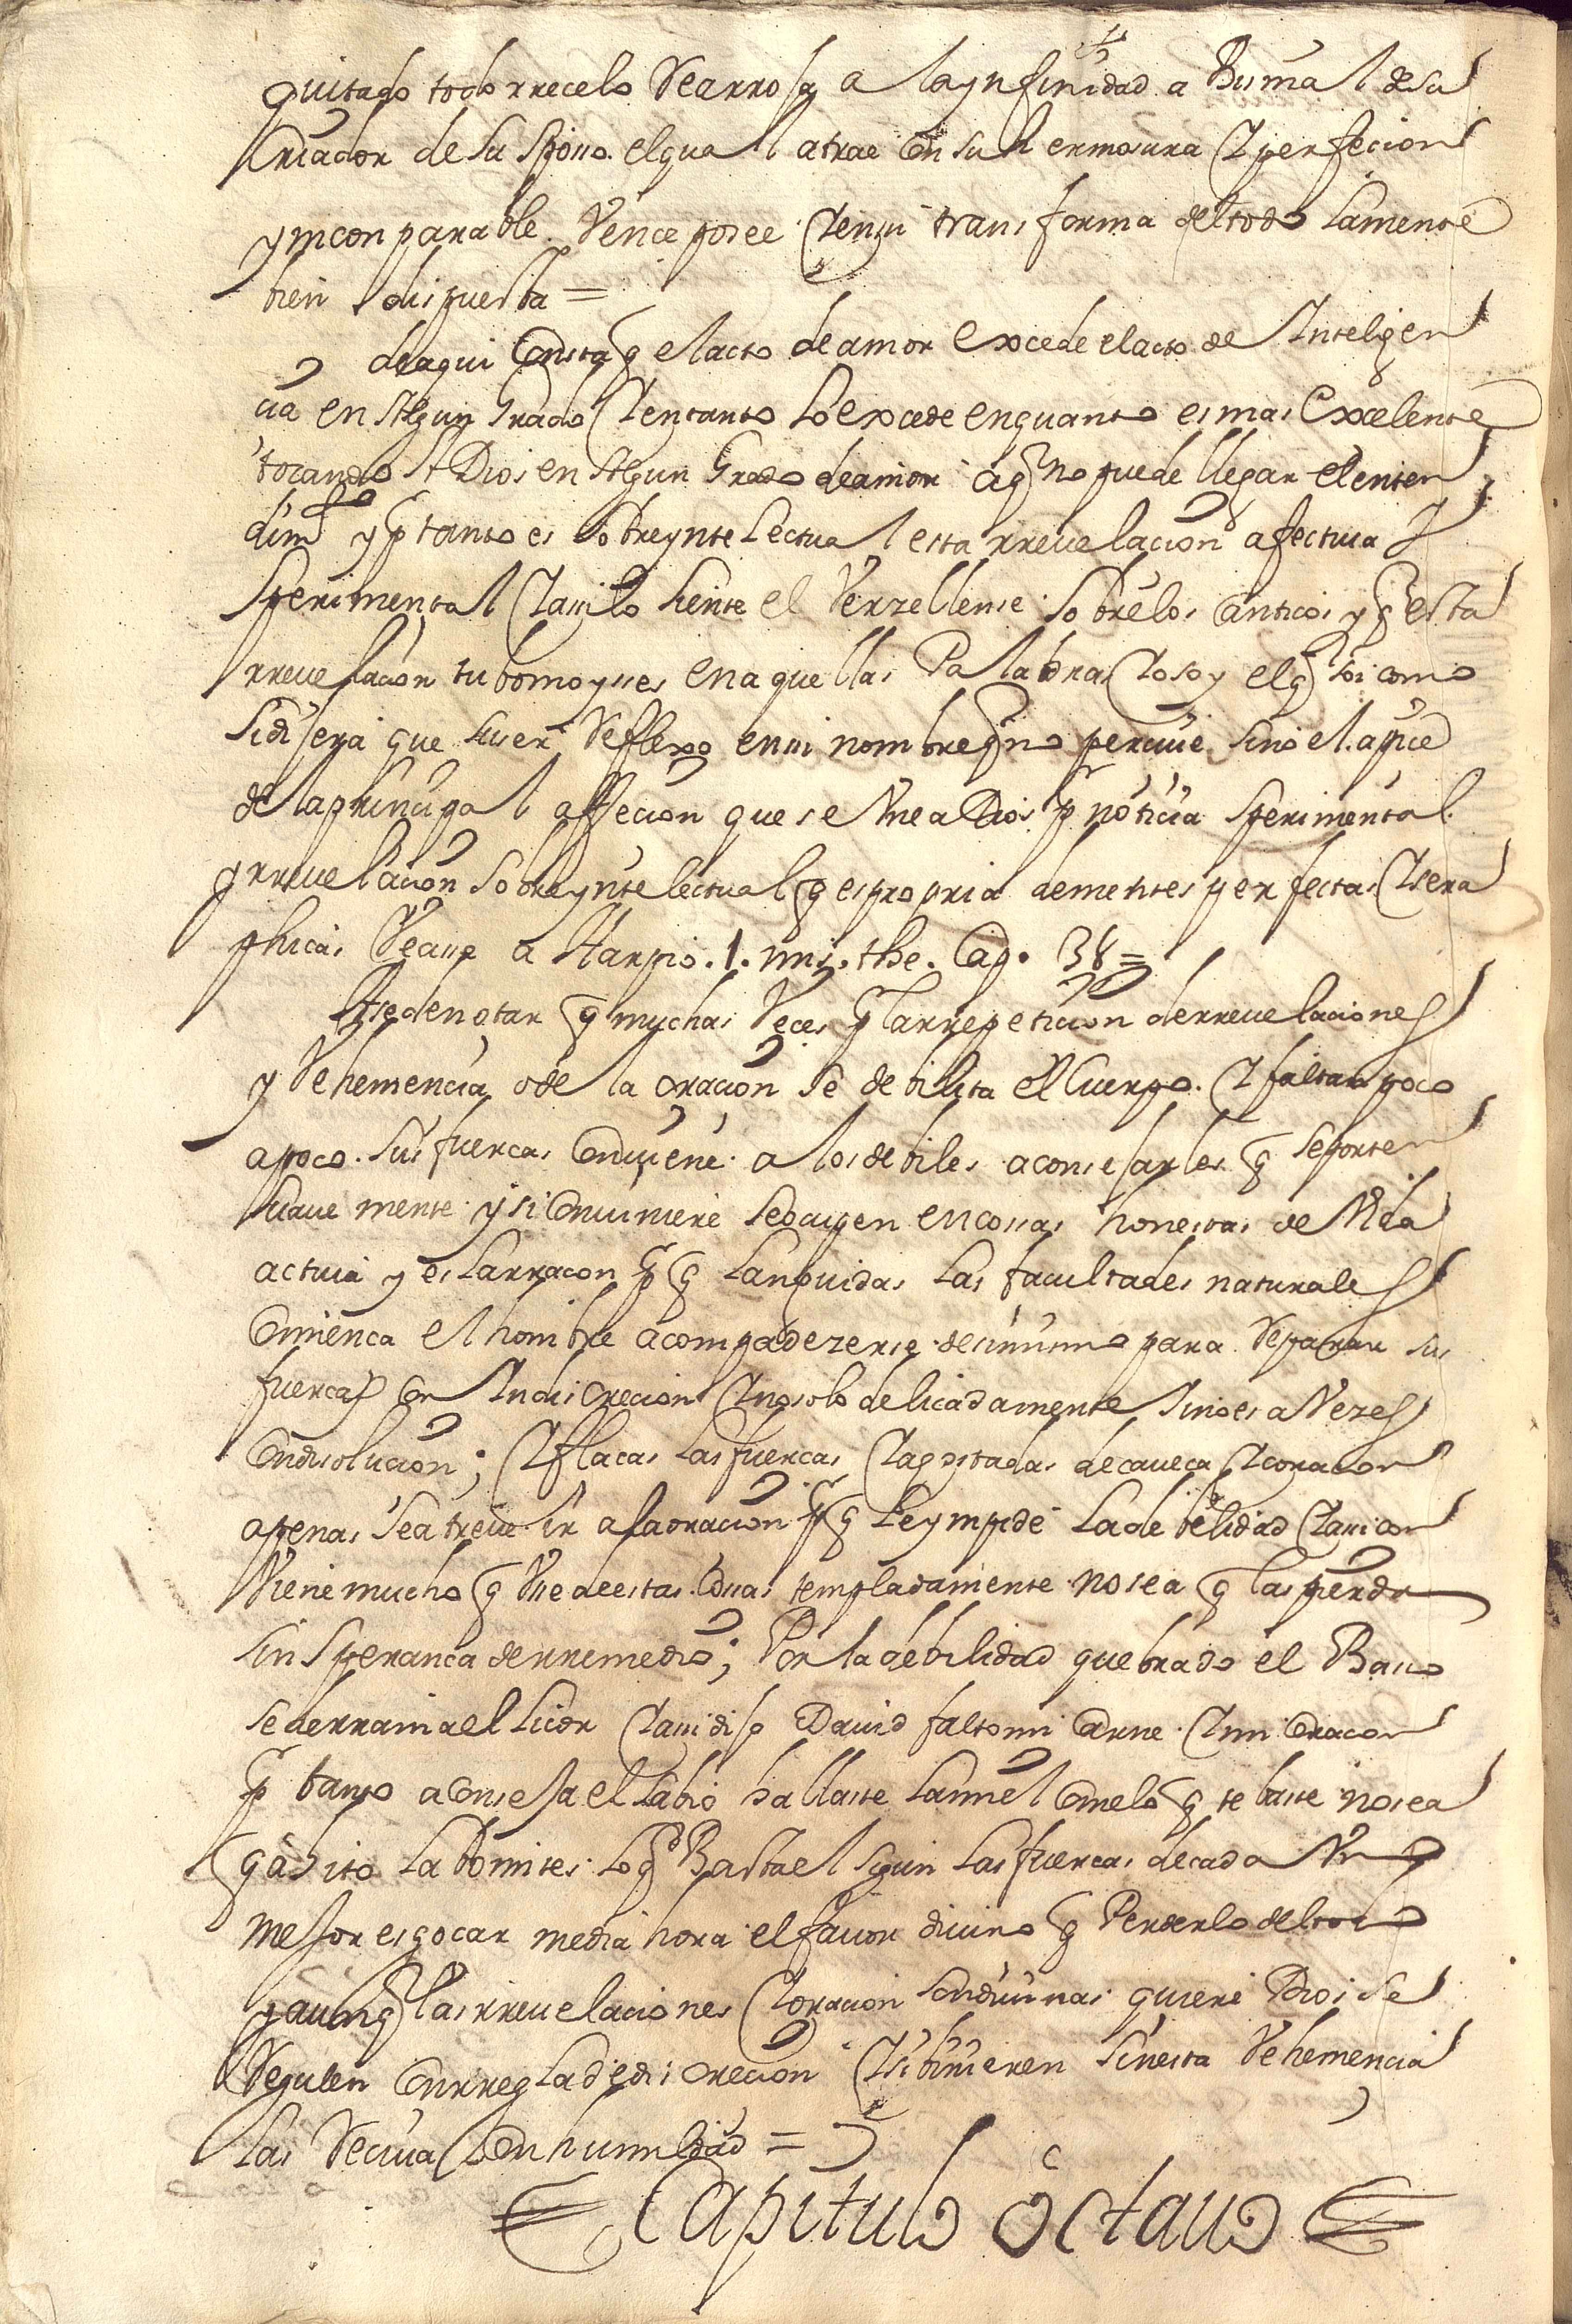 quitado todo rrecelo Se arroja a la ynfinidad abismal de su
Criador de su sposo. el qual atrae con su hermosura I perfecion
yinconparable. Vence posee I en si transforma del todo la mente
bien dispuesta =
de aqui consta q̃ el acto de amor excede el acto de Inteligen
cia en Algun Grado I en tanto lo excede en quanto es mas excelente
tocando A Dios en Algun Grado de amor a q̃ no puede llegar el enten
dimº y p̃ tanto es sobreyntelectual esta rreuelacion afectiua I
sperimental I assi lo siente el Verzellense sobre los canticos y q̃ esta
rreuelacion tubo moysses en aquellas Palabras Io soy el q̃ soi como
si dijera que su ser Reflexo en mi nombre q̃ no perciue sino el apice
de la principal affecion que se Vne a Dios p̃ noticia sperimental.
y rreuelacion sobreyntelectual q̃ es propria de mentes perfectas I sera
phicas Vease a Harpio. 1. mis. the. Cap. 38 =
Ase de notar q̃ muchas Veces p̃ la rrepeticion de rreuelaciones
y Vehemencia de la oracion se debilita el Cuerpo. I faltan poco
a poco sus fuercas Conuiene a los debiles aconsejarles q̃ se porten
suaue mente y si conuiniere se ocupen en cossas honestas de Vida
actiua y es la rracon p̃ q̃ languidas las facultades naturales
comienca el hombre a compadezerse de si mismo para Reparar sus
fuercas con Indiscrecion I no solo delicadamente sino es a Vezes
con disolucion; I flacas las fuercas I agostadas de caueca I coracon
apenas se atreue ir a la oracion p̃ q̃ le ympide la debilidad I assi con
Viene mucho q̃ Vse de estas cossas templadamente no sea q̃ las pierda
sin speranca de rremedio; Por la debilidad quebrado el Basso
se derrama el licor I assi dijo Dauid falto mi carne I mi coracon
p̃ tanto aconseja el sabio hallaste la miel come lo q̃ te baste no sea
q̃ aito la bomites lo q̃ Basta el sigun las fuercas de cada Vno
mejor es gocar media hora el fauor diuino q̃ Perderlo del todo
y aunq̃ las rreuelaciones I oracion son diuinas quiere Dios se
Regulen con rregla de discrecion I si binieren sin esta Vehemencia
las Reciua Con humildad =
Capitulo octauo